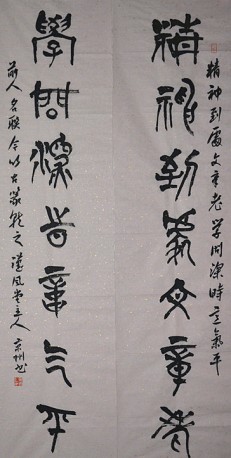 精神到處文章老學問深時意氣平
精神到處文章老
學問深時意氣平
前人名聯今以古篆之風堂主人書